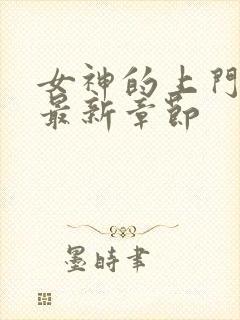 女神的上門
最新章節
墨時書